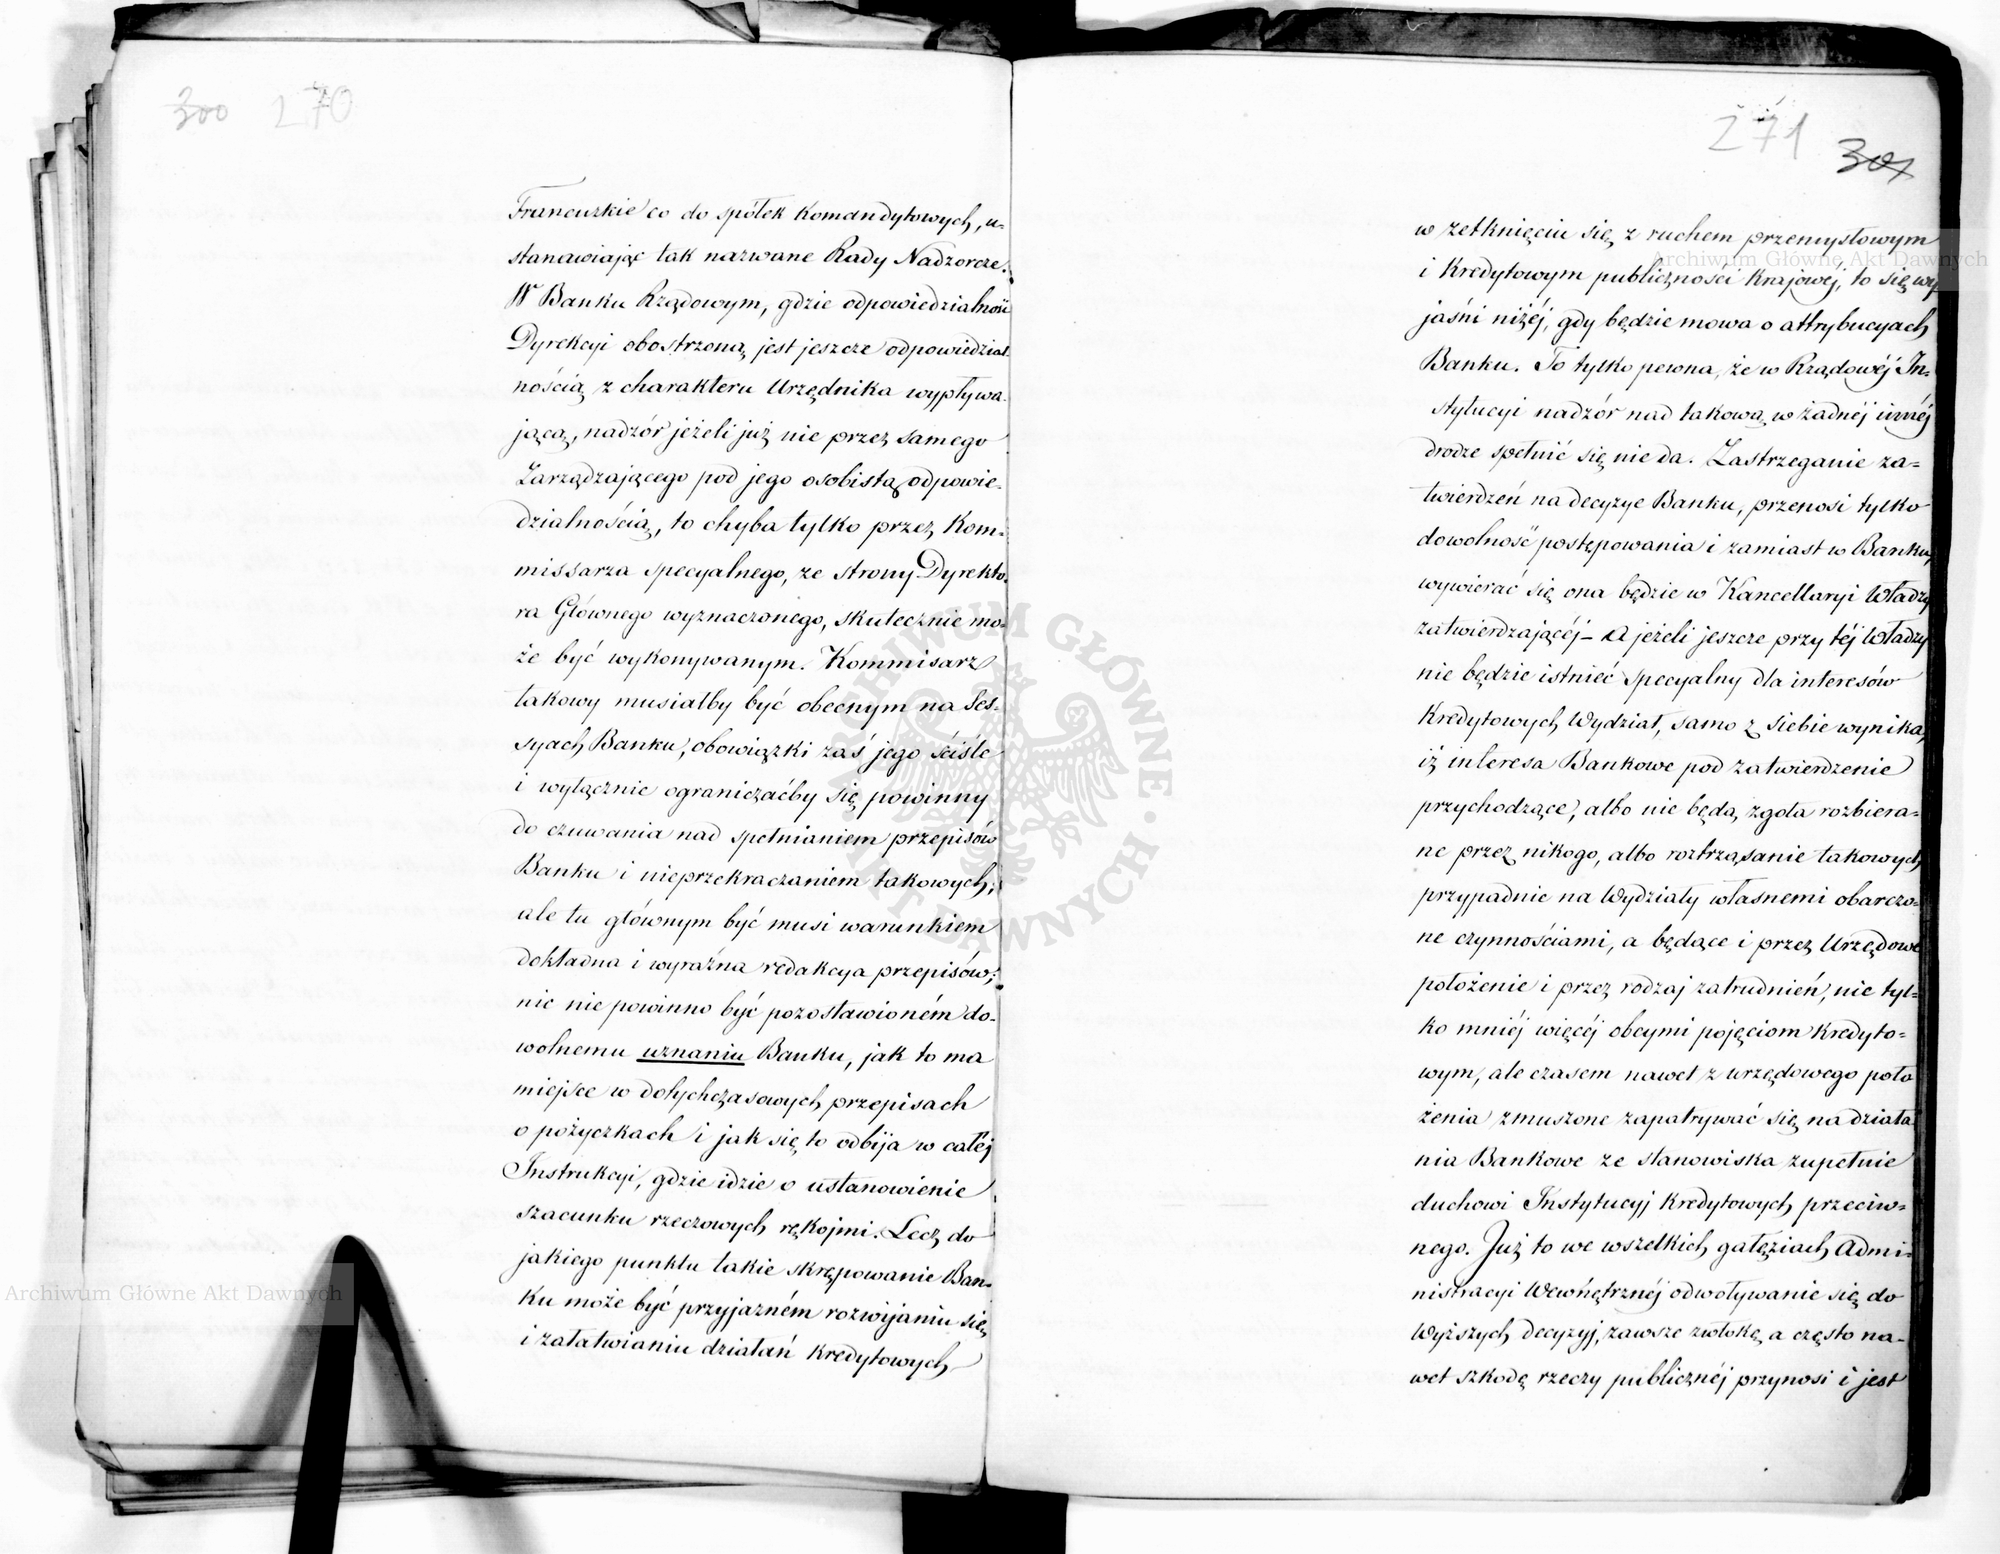 300 270
Francuzkie co do spółek Komandytowych, u-
stanawiając tak nazwane Rady Nadzorcze.
W Banku Rządowym, gdzie odpowiedzialność
Dyrekcyi obostrzoną jest jeszcze odpowiedzial-
nością z charakteru Urzędnika wypływa-
jącą, nadzór jeżeli już nie przez samego
Zarządzającego pod jego osobistą odpowie-
dzialnością, to chyba tylko przez Kom-
missarza specyalnego, ze strony Dyrekto-
ra Głównego wyznaczonego, skutecznie mo-
że być wykonywanym. Kommisarz
takowy musiałby być obecnym na Ses-
syach Banku, obowiązki zaś jego ściśle
i wyłącznie ograniczaćby się powinny
do czuwania nad spełnianiem przepisów
Banku i nieprzekraczaniem takowych;
ale tu głównym być musi warunkiem
dokładna i wyraźna redakcya przepisów;
nic nie powinno być pozostawioném do-
wolnemu uznaniu Banku, jak to ma
miejsce w dotychczasowych przepisach
o pożyczkach i jak się to odbija w całéj
Instrukcyi, gdzie idzie o ustanowienie
szacunku rzeczowych rękojmi. Lecz do
jakiego punktu takie skrępowanie Ban-
ku może być przyjazném rozwijaniu się
i załatwianiu działań kredytowych
271 301
w zetknięciu się z ruchem przemysłowym
i Kredytowym publiczności Krajowéj, to się wy-
jaśni niżéj, gdy będzie mowa o attrybucyach
Banku. To tylko pewna, że w Rządowéj In-
stytucyi nadzór nad takową w żadnéj innéj
drodze spełnić się nie da. Zastrzeganie za-
twierdzeń na decyzye Banku, przenosi tylko
dowolność postępowania i zamiast w Banku,
wywierać się ona będzie w Kancellaryi Władzy
zatwierdzającéj – A jeżeli jeszcze przy téj Władzy
nie będzie istnieć specyalny dla interesów
Kredytowych Wydział, samo z siebie wynika,
iż interesa Bankowe pod zatwierdzenie
przychodzące, albo nie będą zgoła rozbiera-
ne przez nikogo, albo roztrząsanie takowych
przypadnie na Wydziały własnemi obarczo-
ne czynnościami, a będące i przez Urzędowe
położenie i przez rodzaj zatrudnień, nie tyl-
ko mniéj więcéj obcymi pojęciom Kredyto-
wym, ale czasem nawet z urzędowego poło
żenia zmuszone zapatrywać się na działa-
nia Bankowe ze stanowiska zupełnie
duchowi Instytucyj Kredytowych przeciw-
nego. Już to we wszelkich gałęziach Admi-
nistracyi Wewnętrznéj odwoływanie się do
Wyższych decyzyj, zawsze zwłokę a często na-
wet szkodę rzeczy publicznéj przynosi i jest
Archiwum Główne Akt Dawnych
Archiwum Główne Akt Dawnych
ARCHIWUM GŁÓWNE AKT DAWNYCH